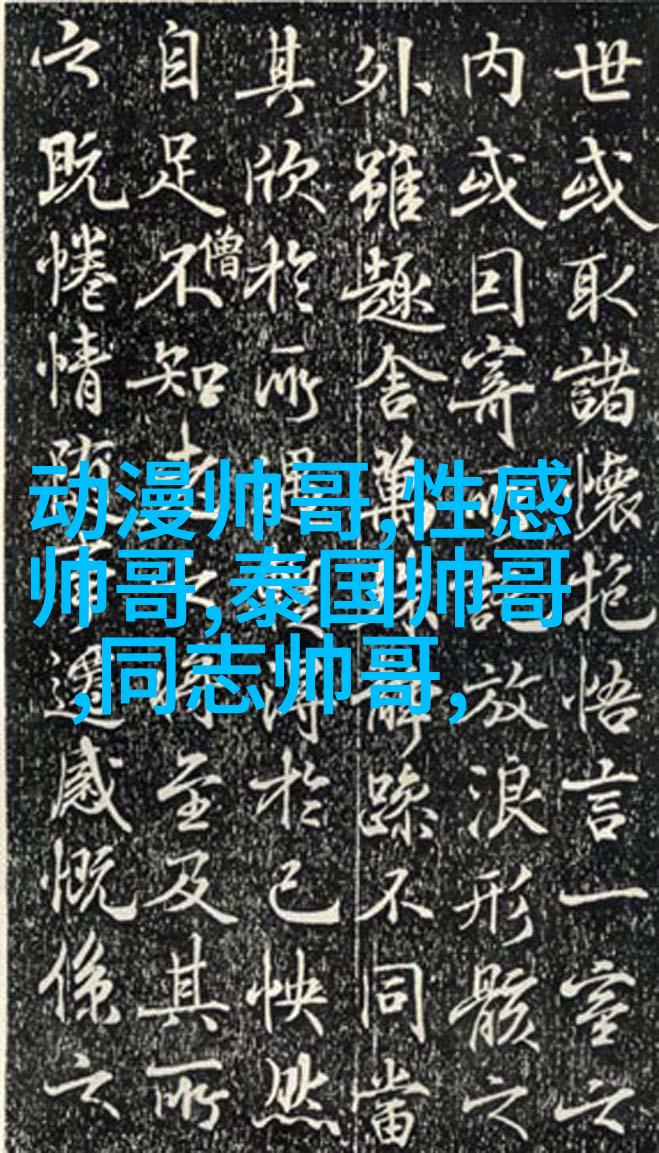 世或取諸懷抱悟言一室之
内或因寄所託放浪形骸之
外雖趣舍萬殊静躁不同當
其欣於所遇蹔得於己怏然
自足不知老之將至及其所
僧
之既惓情隨事遷感慨係之
动漫帅哥,性感
帅哥,泰国帅哥
,同志帅哥,